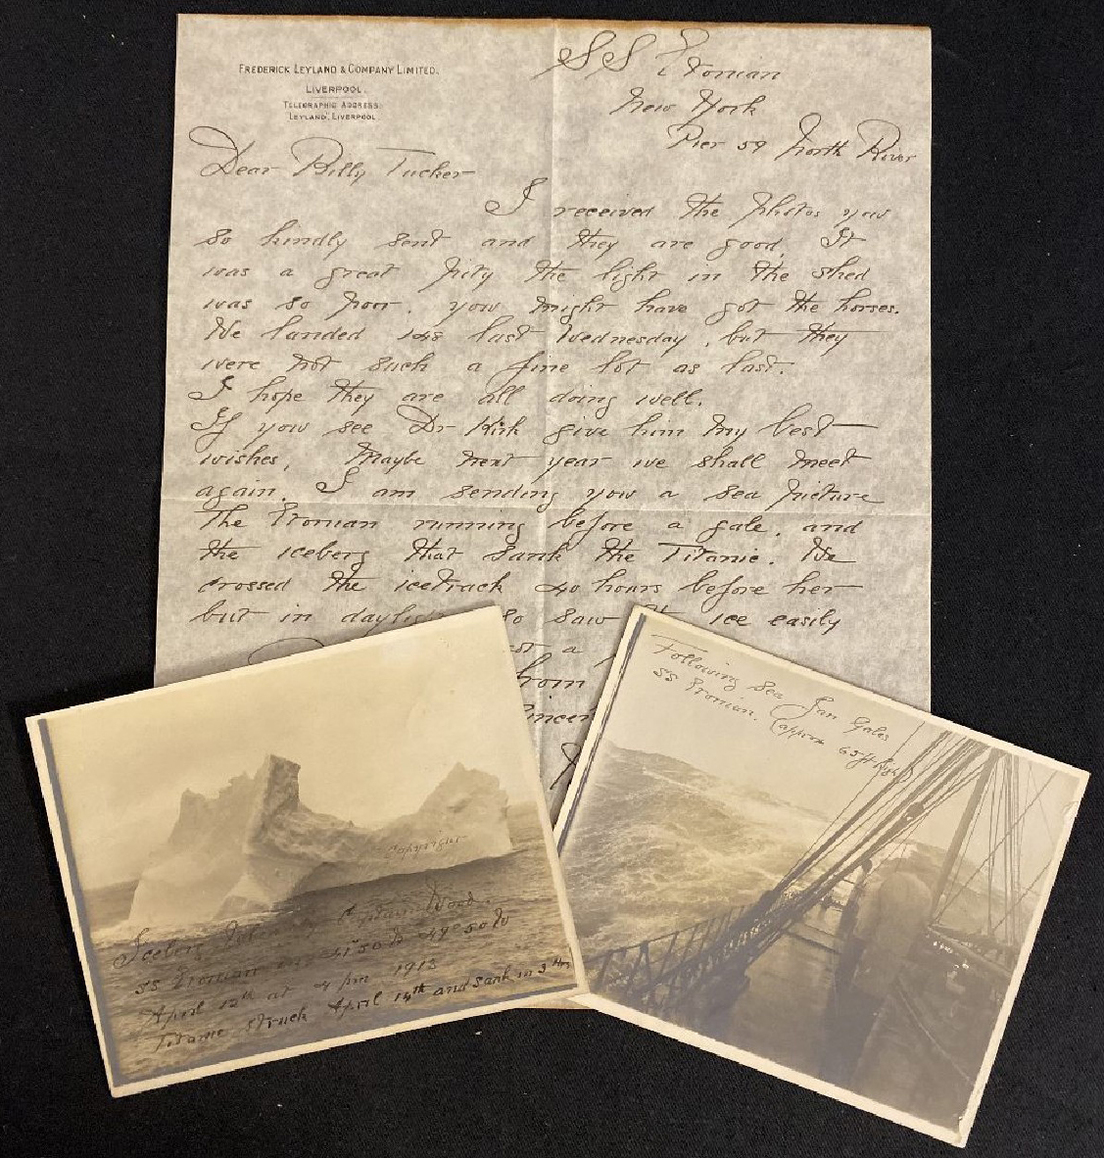 FREDERICK LEYLAND & COMPANY LIMITED.
LIVERPOOL.
TELEGRAPHIC ADDRESS:
"LEYLAND", LIVERPOOL
SS Etonian
New York
Pier 59 North River
Dear Billy Tucker
I received the photos you
so kindly sent and they are good. It
was a great pity the light in the shed
was so poor. you might have got the horses.
We landed 148 last Wednesday, but they
were not such a fine lot as last.
I hope they are all doing well.
If you see Dr Kirk give him my best
wishes, Maybe next year we shall meet
again. I am sending you a sea picture
The Etonian running before a gale. and
the iceberg that sank the Titanic. We
crossed the ice track 40 hours before her
but in daylight so saw the ice easily
a
Copyright
Iceberg taken by Captain Wood.
SS Etonian in 41°50 N 49°50 W
April 12th at 4 pm 1913
Titanic struck April 14th and sank in 3 Hrs
Following Sea Jan Gales
SS Etonian. (approx 65 ft high)